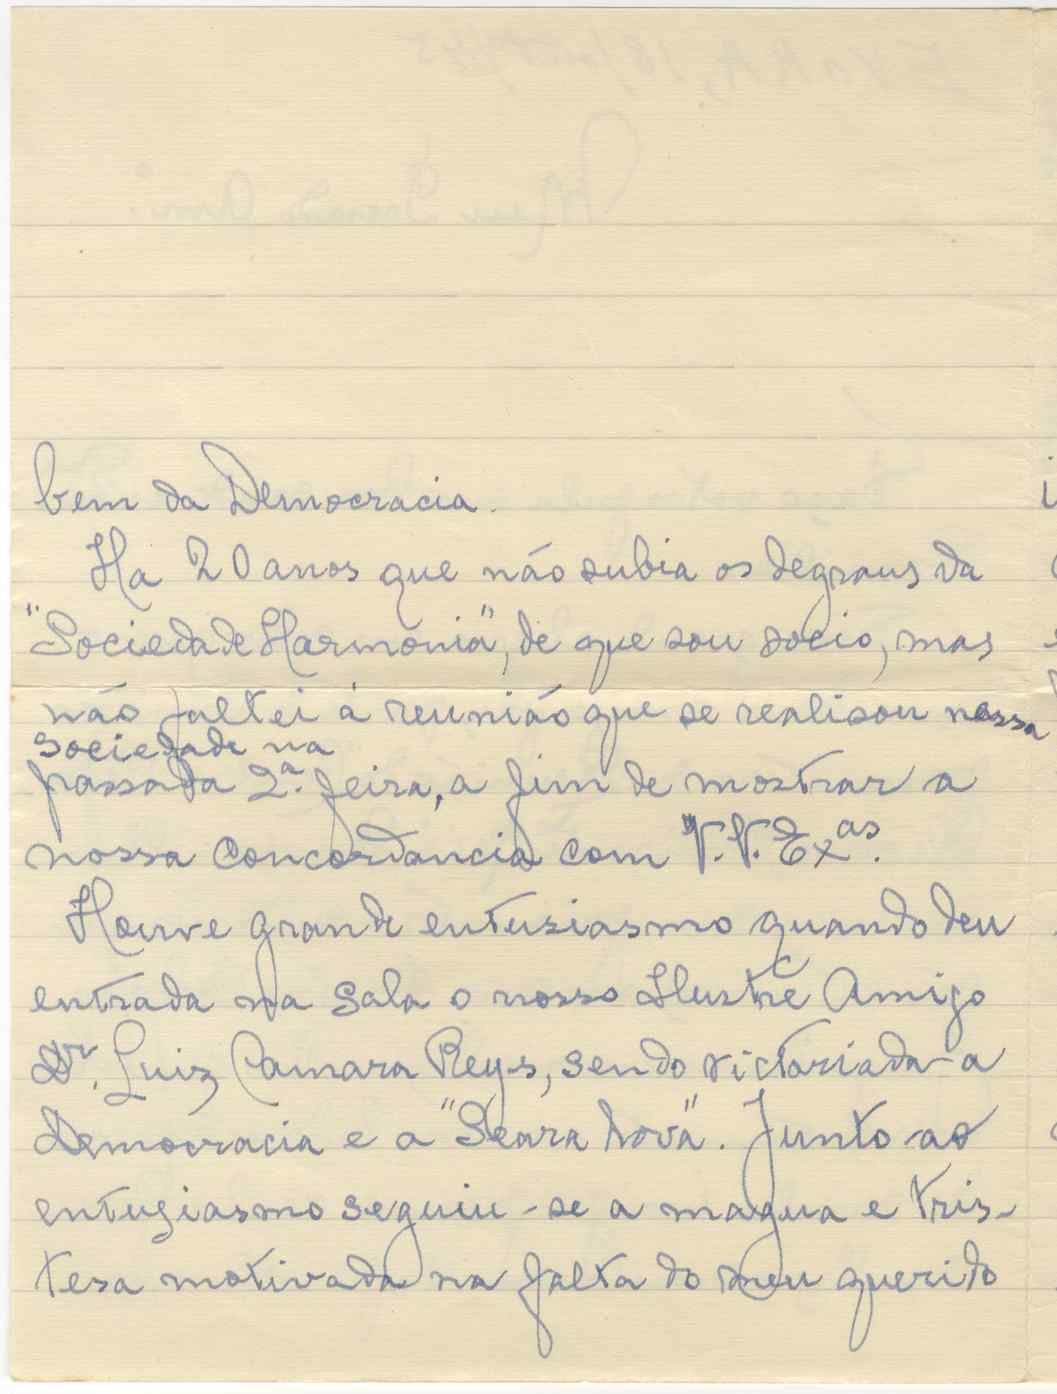 bem da Democracia.
Ha 20 anos que não subia os degraus da
"Sociedade Harmonia", de que sou socio, mas
não faltei á reunião que se realisou nessa
sociedade na
passada 2ª. feira, a fim de mostrar a
nossa concordancia com V.V. Exas.
Houve grande entusiasmo quando deu
entrada na sala o nosso Ilustre Amigo
Dr. Luiz Camara Reys, sendo victoriada a
Democracia e a "Seara Nova". Junto ao
entusiasmo seguiu-se a magua e tris-
tesa motivada na falta do meu querido